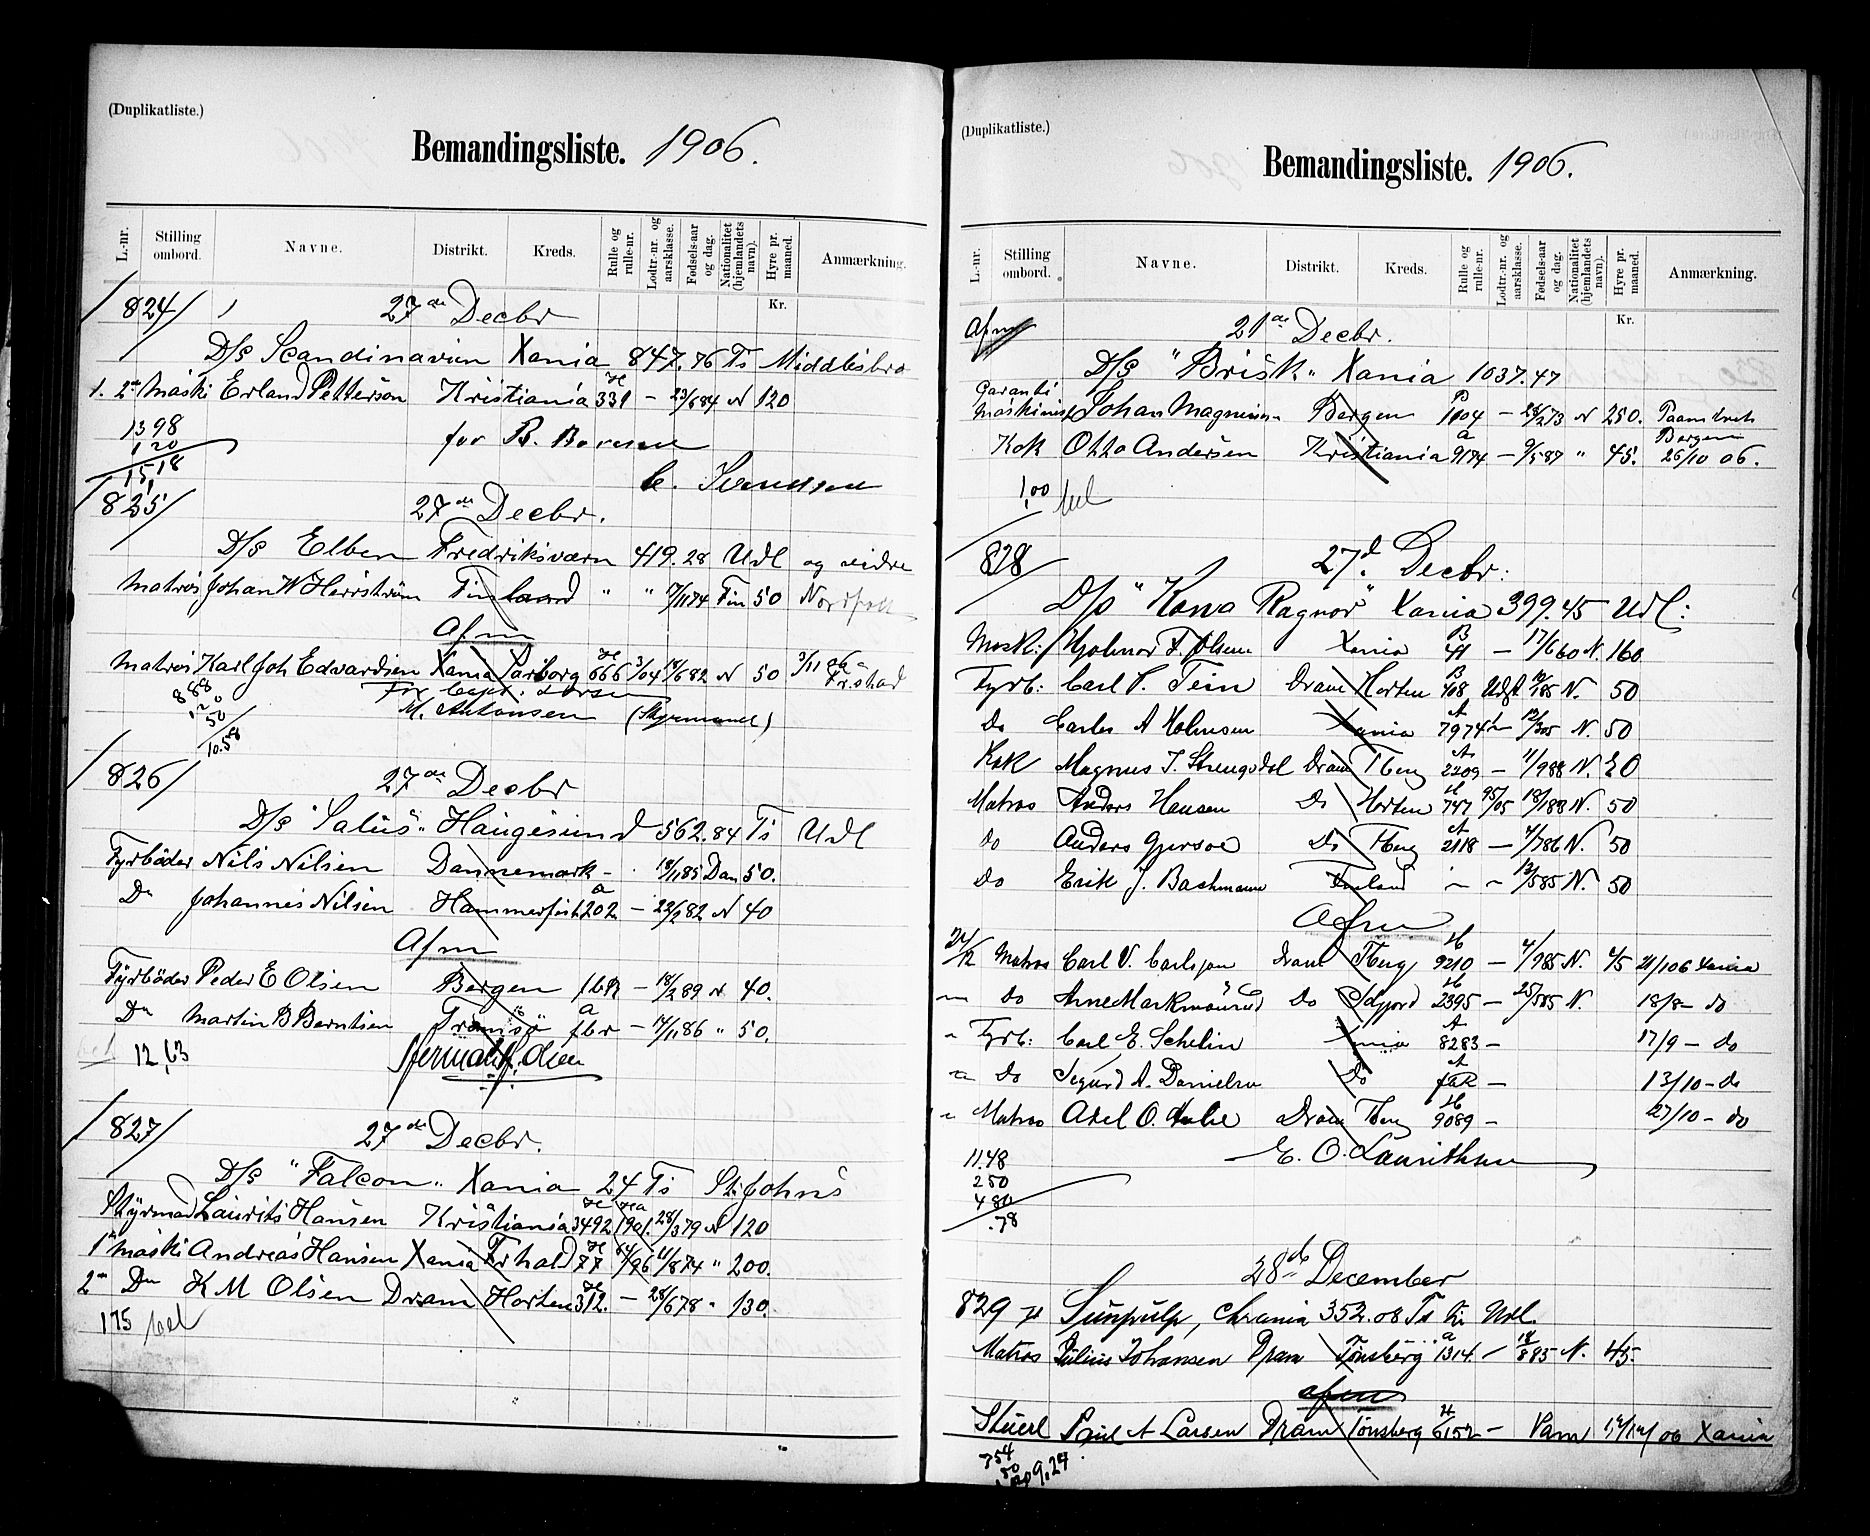 (Duplikatliste.)
Bemandingsliste. 1906.
L.-nr. Stilling ombord. Navne. Distrikt. Kreds. Rulle og rulle-nr. Lodtr.-nr. og aarsklasse. Fødsels-aar og dag. Nationalitet (hjemlandets navn). Hyre pr. maaned. Anmærkning.
Kr.
824/ 27de Decbr
D/S Scandinavien Xania 847.76 Ts Middlesbro
1. 2n Maski Erland Petterson Kristiania 331 - 23/684 N 120
1398 for B.
120
1518 C.
825/ 27de Decbr.
D/S Elben Fredriksværn 419.28 Udl og videre
Matros Johan W Herrström Finland " " 7/1174 Fin 50
Afm
Matros Karl Joh Edvardsen Xania Sarborg 666 3/04 19/682 N 50 3/11 06 Frstad
888 For Capt. Larsen
120 M. Antonsen (Styrmand)
50
10.58
826/ 27de Decbr
D/S "Salus" Haugesund 562.84 Ts Udl
Fyrböder Nils Nilsen Dannemark - 18/1185 Dan 50.
Do Johannes Nilsen Hammerfest 202 - 22/282 N 40
Afm
Fyrböder Peder E Olsen Bergen fbR - 18/289 N 40.
Do Martin B Berntsen Tromsö fbr - 17/1186 " 50.
12,63
827/ 27de Decbr.
D/S "Falcon" Xania 24 Ts St Johns
Styrmad Laurits Hansen Kristiania 3492 1901. 28/379 N 120
1n Maski Andreas Hansen Xania Frhald 77 /96 11/874 " 200.
2n Do K M Olsen Dram Horten 312. - 28/678 " 130.
175 bet
(Duplikatliste.)
Bemandingsliste. 1906.
L.-nr. Stilling ombord. Navne. Distrikt. Kreds. Rulle og rulle-nr. Lodtr.-nr. og aarsklasse. Fødsels-aar og dag. Nationalitet (hjemlandets navn). Hyre pr. maaned. Anmærkning.
Kr.
Afm 21de Decbr.
D/S "Brisk" Xania 1037.47
Garanti
Maskinist Johan Magnussen Bergen 1104 - 28/273 N 250. Paamönst
Bergen
Kok Otto Andersen Kristiania 9174 - 9/587 " 45. 26/10 06.
1,00 bet
828 27d. Decbr:
D/S "Kong Ragnar" Xania 399.45 Udl:
Mask: Hjalmar F. Olsen Xania 41 - 17/660 N. 160
Fyrb: Carl P. Fein Dram Horten 408 Udsk 12/185 N. 50
Do Carles A Holmsen Xania 7974 - 12/305 N. 50
Kok Magnus J. Strengsdal Dram Tberg 2209 - 11/988 N. 20
Matros Anders Hansen Do Horten 747 95/05 18/183 N. 50
do Anders Gjersoe Do Tberg 2118 - 4/786 N. 50
Do Erik J. Backmann Finland - - 12/585 N. 50
Afm
24/12 Matros Carl V. Carlsson Dram Tberg 9210 - 4/985 N. 45 21/106 Xania
- Do Arne Markmanrud Do Sdfjord 2395 - 25/585 N. 18/8 - do
- Fyrb: Carl E. Schelin Xania 8283 - 17/9 - do
- Do Sigurd A. Danielsen Do fbR - 13/10 - do
- Matros Axel O. Dram Tberg 9089 - 27/10 - do
11.48 E. O. Lauritsen
250
480
.78
28de December
829 Sunpulp, Chrania 352.08 Ts til Udl.
Matros Julius Johansen Dram Tönsberg 1314. - 18/885 N. 45.
afm
Stuert Paul A Larsen Dram Tönsberg 6152 - 06 Xania
754
50
9,24